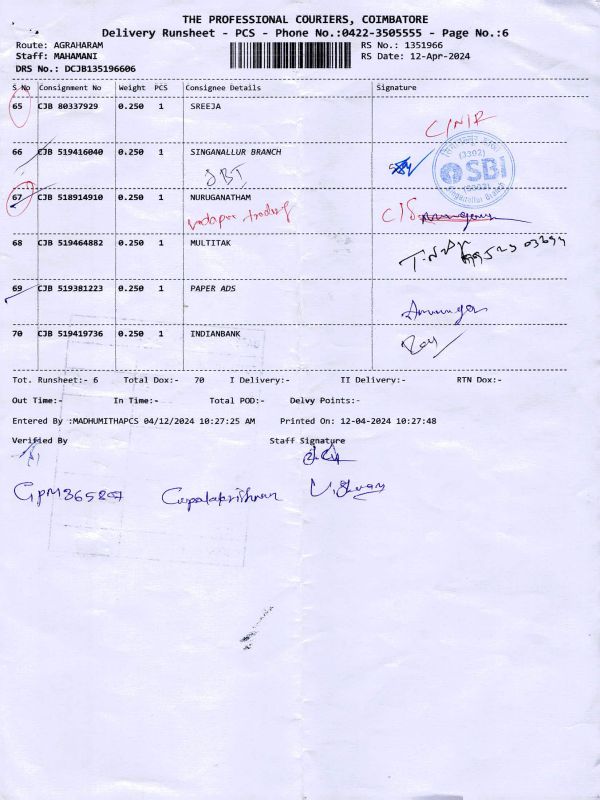 THE PROFESSIONAL COURIERS, COIMBATORE
Delivery Runsheet - PCS - Phone No.:0422-3505555 - Page No.:6
Route: AGRAHARAM RS No.: 1351966
Staff: MAHAMANI RS Date: 12-Apr-2024
DRS No.: DCJB135196606
S No Consignment No Weight PCS Consignee Details Signature
65 CJB 80337929 0.250 1 SREEJA
C/NIR
66 CJB 519416040 0.250 1 SINGANALLUR BRANCH
SBI
(3302)
SBI
Singanallur Branch
67 CJB 518914910 0.250 1 NURUGANATHAM
C/S
68 CJB 519464882 0.250 1 MULTITAK
69 CJB 519381223 0.250 1 PAPER ADS
70 CJB 519419736 0.250 1 INDIANBANK
Tot. Runsheet:- 6 Total Dox:- 70 I Delivery:- II Delivery:- RTN Dox:-
Out Time:- In Time:- Total POD:- Delvy Points:-
Entered By :MADHUMITHAPCS 04/12/2024 10:27:25 AM Printed On: 12-04-2024 10:27:48
Verified By Staff Signature
Gopalakrishnan